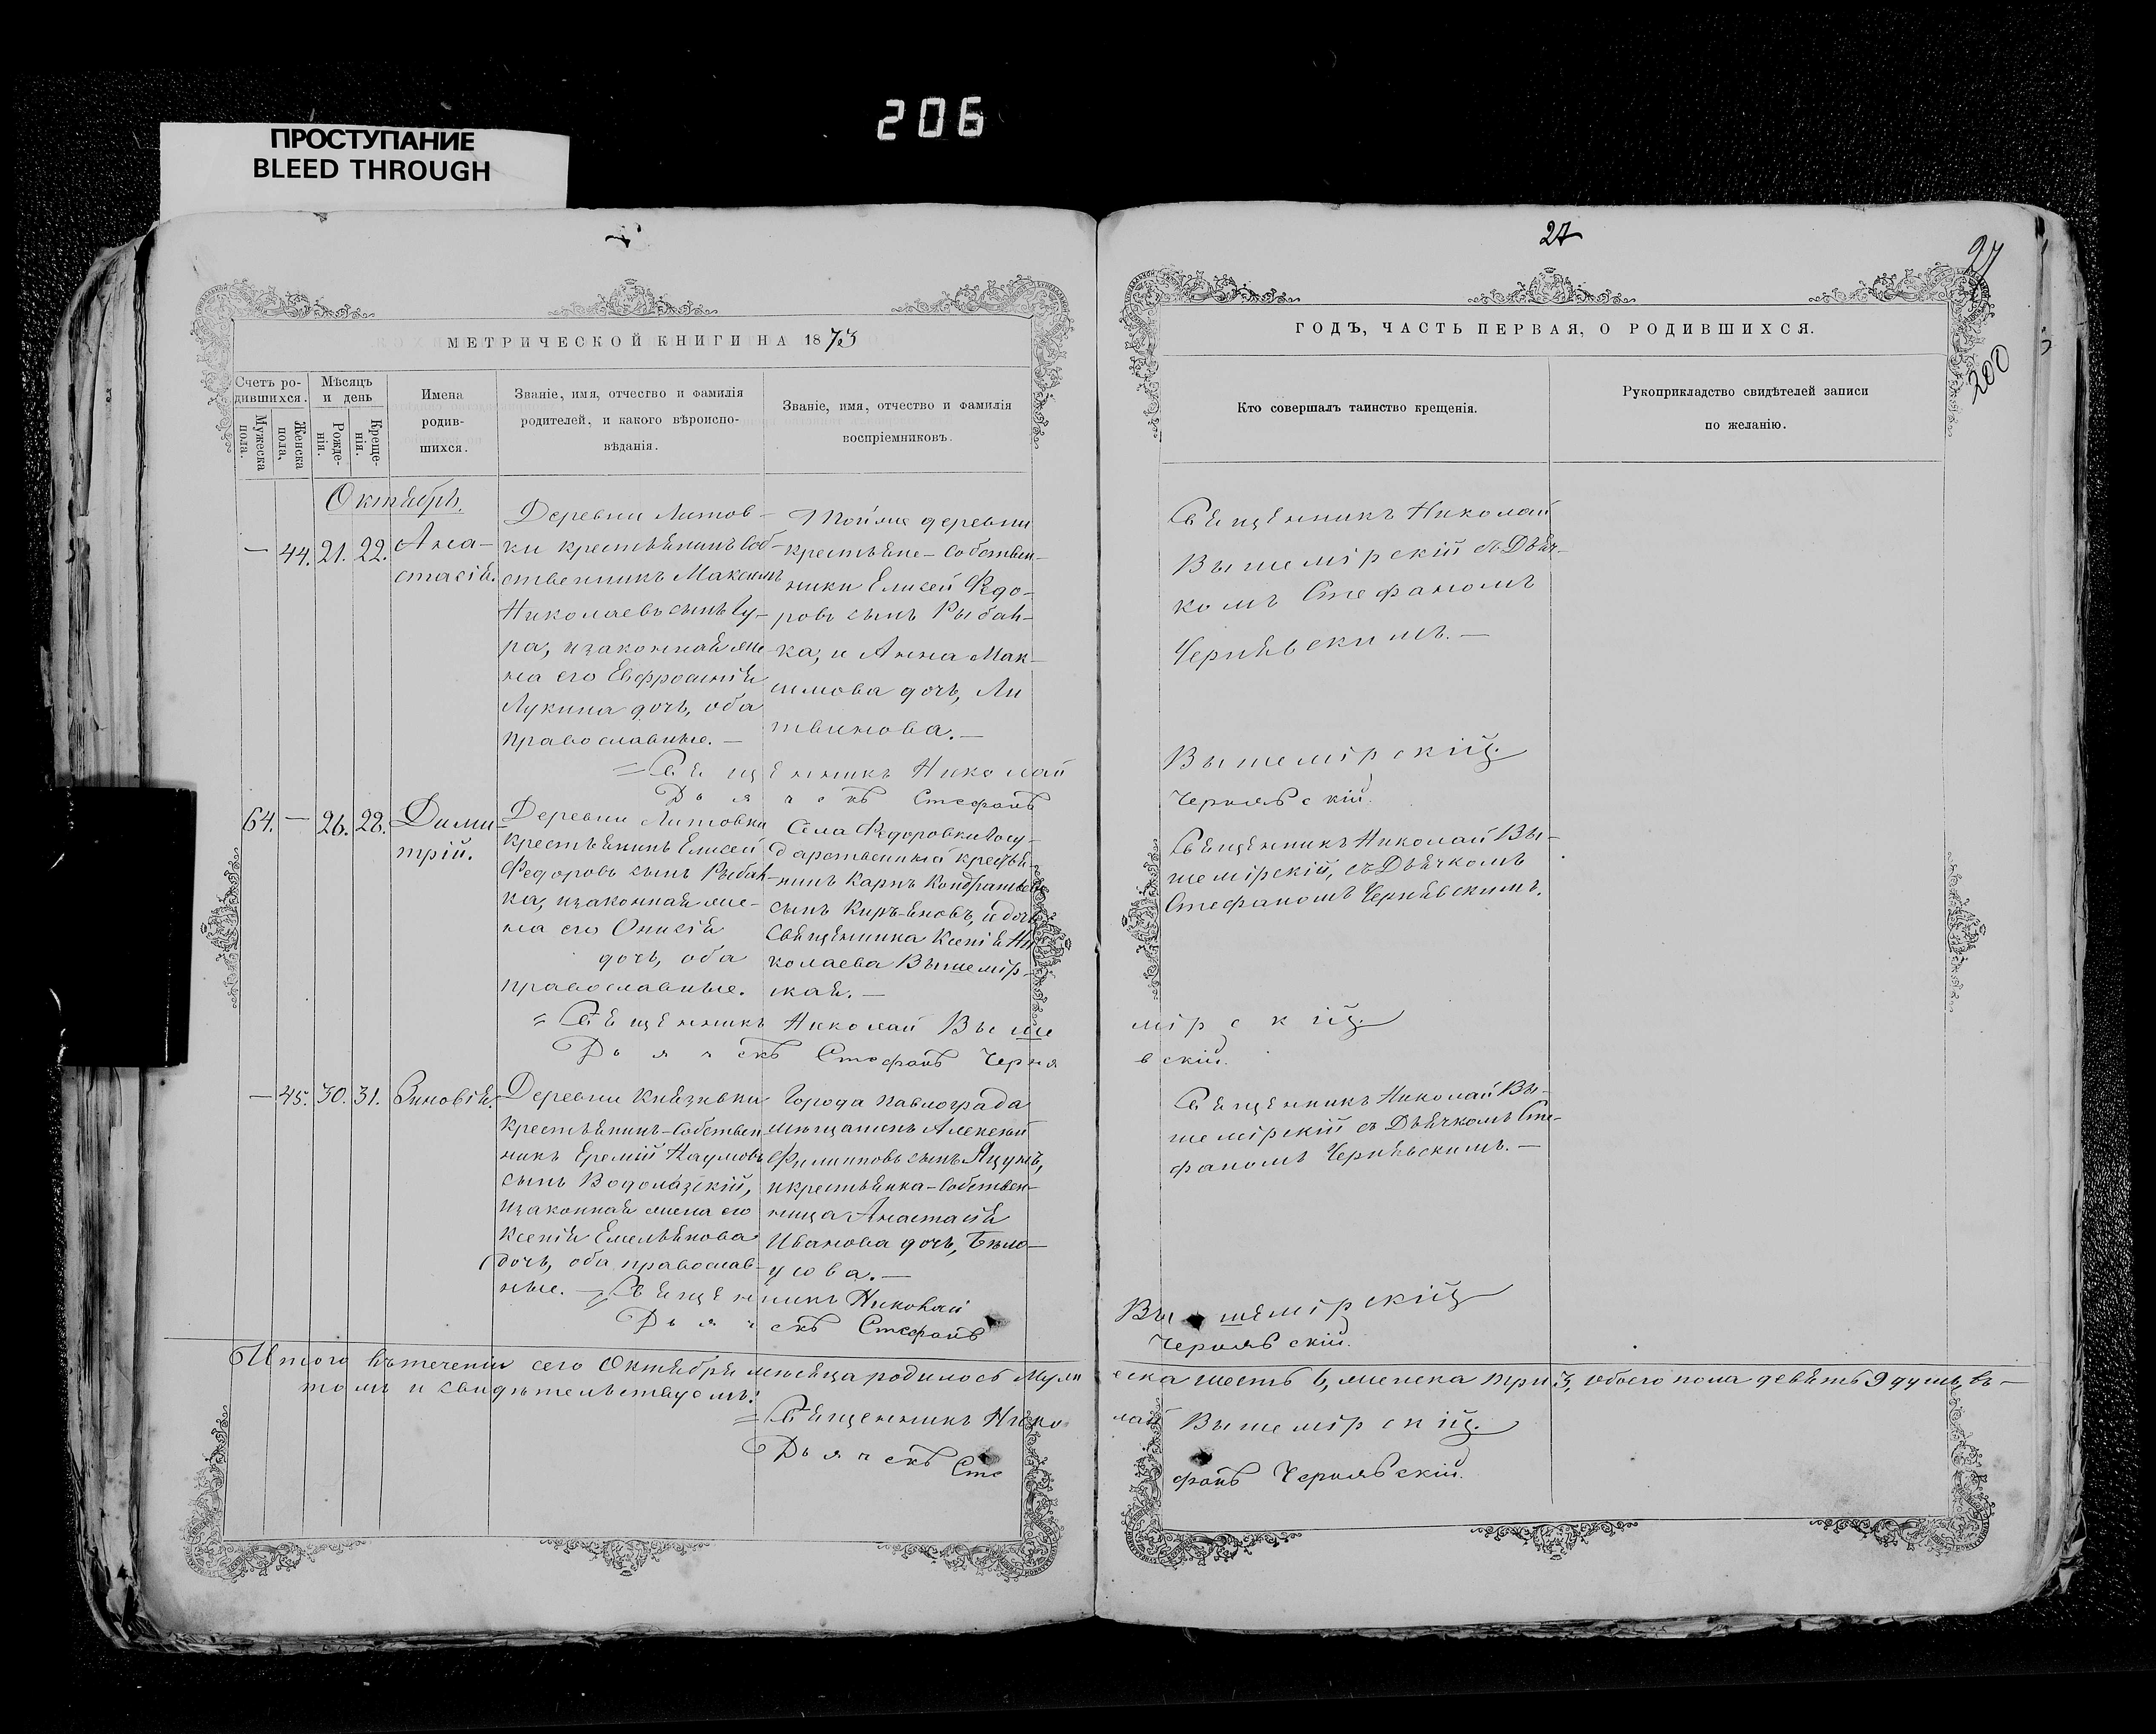 206
ПРОСТУПАНИЕ
BLEED THROUGH
27
27
200
МЕТРИЧЕСКОЙ КНИГИ НА 1873
ГОДЪ, ЧАСТЬ ПЕРВАЯ, О РОДИВШИХСЯ.
Счетъ ро-
дившихся.
Мужеска
пола.
Женска
пола.
Мѣсяцъ
и день
Рожде-
нія.
Креще-
нія.
Имена
родив-
шихся.
Званіе, имя, отчество и фамилія
родителей, и какого вѣроиспо-
вѣданія.
Званіе, имя, отчество и фамилія
воспріемниковъ.
Кто совершалъ таинство крещенія.
Рукоприкладство свидѣтелей записи
по желанію.
Октябрь.
— 44. 21. 22.
Ана-
стасія.
Деревни Литов-
ки крестьянинъ Соб-
ственникъ Максимъ
Николаевъ сынъ Гу-
ра, и законная же-
на его Евфросинія
Лукина дочь, оба
православные. —
Тойже деревни
крестьяне-Собствен-
ники Елисей Ѳедо-
ровъ сынъ Рыбал-
ка, и Анна Мак-
симова дочь, Ли
твинова. —
Священникъ Николай
Вышемірскій съ Дьяч-
комъ Стефаномъ
Чернявскимъ. —
= Священникъ Николай Вышемірскій.
Дьячекъ Стефанъ Чернявскій.
64. — 26. 28.
Дими-
трій.
Деревни Литовки
крестьянинъ Елисей
Ѳедоровъ сынъ Рыбал-
ка, и законная же-
на его Онисія
дочь, оба
православные.
Села Ѳедоровки Госу-
дарственный крестья-
нинъ Карпъ Кондратьевъ
сынъ Кирьяновъ, и дочь
Священника Ксенія Ни
колаева Вышемір-
ская. —
Священникъ Николай Вы-
шемірскій, съ Дьячкомъ
Стефаномъ Чернявскимъ.
= Священникъ Николай Вышемірскій.
Дьячекъ Стефанъ Чернявскій.
— 45. 30. 31.
Зиновія.
Деревни Князевки
крестьянинъ-Собствен-
никъ Еремій Наумовъ
сынъ Водолазскій,
и законная жена его
Ксенія Емельянова
дочь, оба православ-
ные. —
Города Павлограда
мѣщанинъ Алексѣй
Филипповъ сынъ Яцунъ,
и крестьянка-Собствен-
ница Анастасія
Иванова дочь, Бѣло-
усова. —
Священникъ Николай Вы-
шемірскій съ Дьячкомъ Сте-
фаномъ Чернявскимъ. —
= Священникъ Николай Вышемірскій
Дьячекъ Стефанъ Чернявскій.
Итого въ теченіи сего Октября мѣсяца родилось Мужеска шесть 6, женска три 3, обоего пола девять 9 душъ, въ —
томъ и свидѣтельствуемъ:
= Священникъ Николай Вышемірскій.
Дьячекъ Стефанъ Чернявскій.